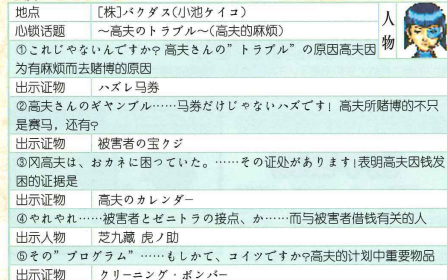 地点 [株]バクダス(小池ケイコ)
人物
心锁话题 ～高夫のトラブル～(高夫的麻烦)
①これじゃないんですか?高夫さんの”トラブル”の原因高夫因
为有麻烦而去赌博的原因
出示证物 ハズレ马券
②高夫さんのギャンブル……马券だけじゃないハズです!高夫所赌博的不只
是赛马，还有?
出示证物 被害者の宝クジ
③冈高夫は、おカネに困っていた。……その证处があります!表明高夫因钱发
困的证据是
出示证物 高夫のカレンダー
④やれやれ……被害者とゼニトラの接点、か……而与被害者借钱有关的人
出示人物 芝九藏 虎ノ助
⑤その”プログラム”……もしかて、コイツですか?高夫的计划中重要物品
出示证物 クリーニング·ボンバー